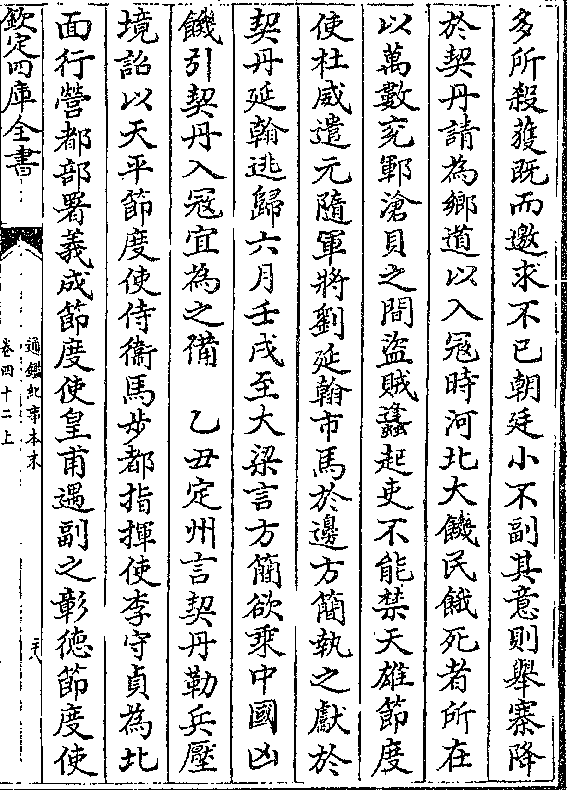 多所殺獲既而邀求不已朝廷小不副其意則舉寨降
於契丹請為鄉道以入冦時河北大饑民餓死者所在
以萬數兖鄆滄貝之間盜賊蠭起吏不能禁天雄節度
使杜威遣元隨軍將劉延翰市馬於邊方簡執之獻於
契丹延翰逃歸六月壬戌至大梁言方簡欲乘中國凶
饑引契丹入冦宜為之備　乙丑定州言契丹勒兵壓
境詔以天平節度使侍衞馬步都指揮使李守貞為北
面行營都部署義成節度使皇甫遇副之彰徳節度使
欽定四庫全書
通鑑紀事本末
卷四十二上